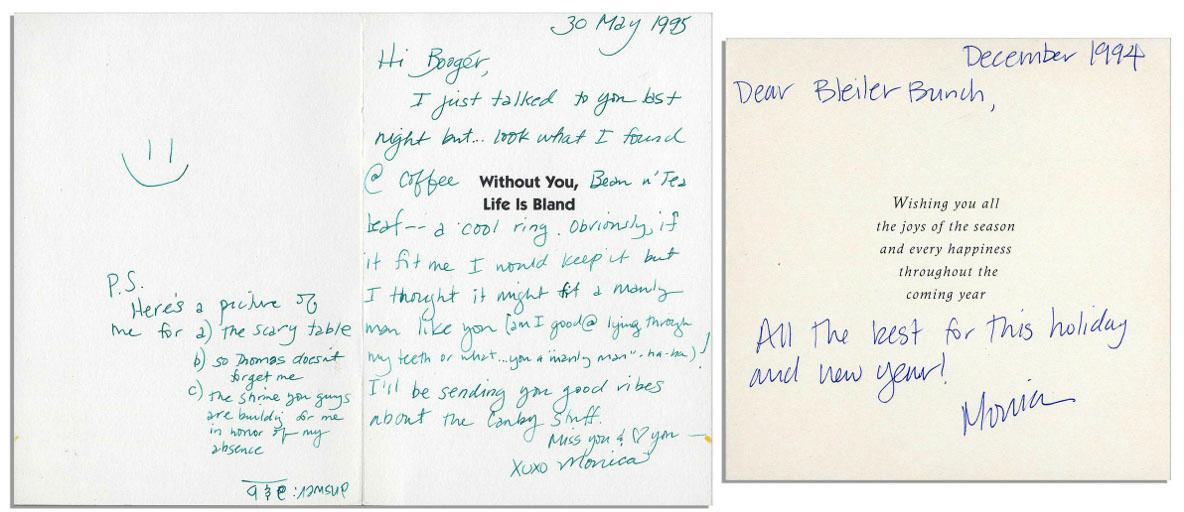 30 May 1995
Hi Boogér,
I just talked to you last
night but... look what I found
@ Coffee Without You, Bean n' Tea
Life Is Bland
Leaf -- a cool ring. Obviously, if
it fit me I would keep it but
I thought it might fit a manly
man like you (am I good @ lying through
my teeth or what...you a "manly man". ha-ha)!
I'll be sending you good vibes
about the Canby Stuff.
Miss you & ♡ you —
XOXO Monica
P.S.
Here's a picture of
me for a) the scary table
b) so Thomas doesn't
forget me
c) the shrine you guys
are buildig for me
in honor of my
absence
answer: a & b
December 1994
Dear Bleiler Bunch,
Wishing you all
the joys of the season
and every happiness
throughout the
coming year
All the best for this holiday
and new year!
Monica